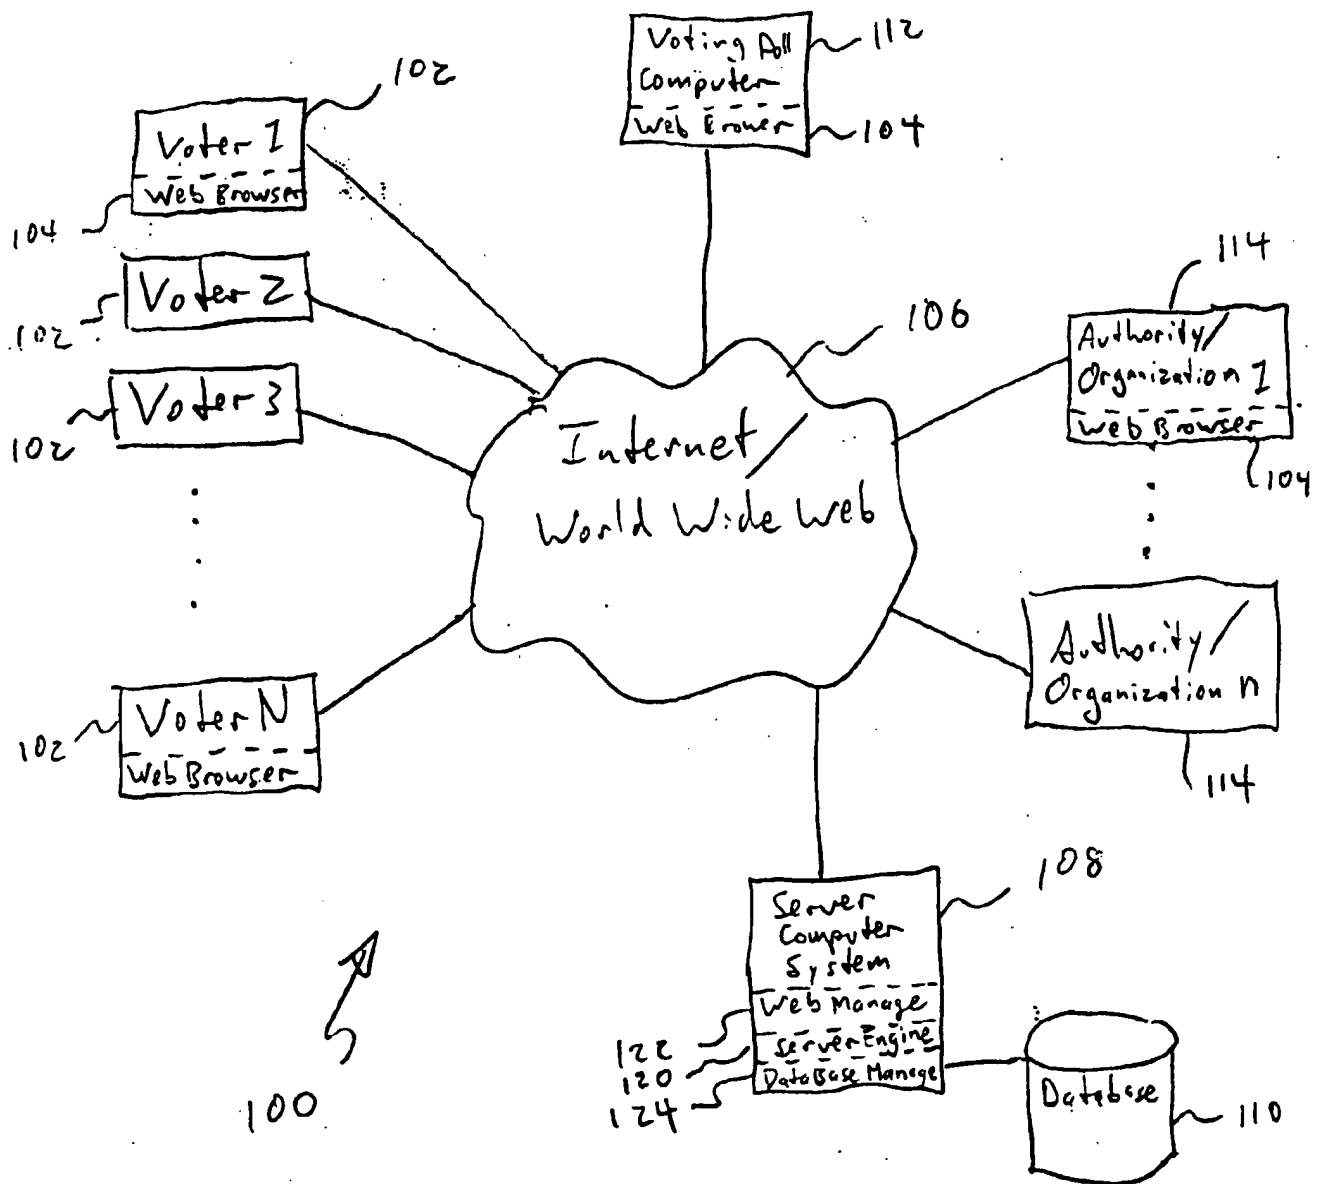 Voting Poll
Computer
Web Browser
112
104
102
Voter 1
Web Browser
104
Voter 2
102
Voter 3
102
Voter N
Web Browser
102
106
Internet/
World Wide Web
114
Authority/
Organization 1
Web Browser
104
Authority/
Organization n
114
108
Server
Computer
System
Web Manage
Server Engine
DataBase Manage
122
120
124
Database
110
100